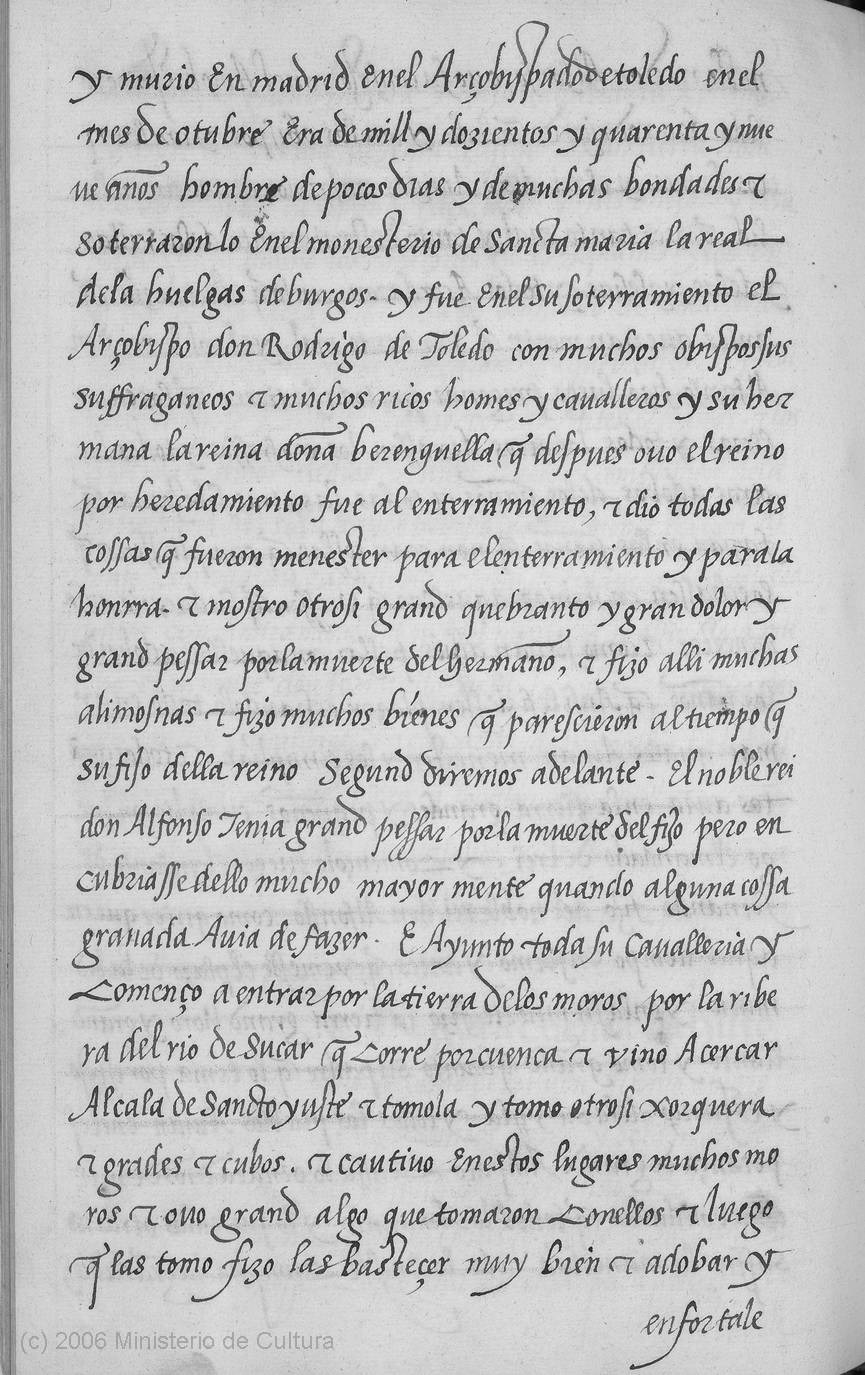 y murio En madrid Enel Arçobispado de toledo enel
mes de otubre Era de mill y dozientos y quarenta y nue
ve años hombre de pocos dias y de muchas bondades τ
soterraron lo Enel monesterio de Sancta maria la real
dela huelgas de burgos. y fue Enel su soterramiento el
Arçobispo don Rodrigo de Toledo con muchos obispos sus
suffraganeos τ muchos ricos homes y cavalleros y su her
mana la reina doña berenguella q̃ despues ovo el reino
por heredamiento fue al enterramiento, τ dio todas las
cossas q̃ fueron menester para el enterramiento y para la
honrra. τ mostro otrosi grand quebranto y gran dolor y
grand pessar por la muerte del hermano, τ fizo alli muchas
alimosnas τ fizo muchos bienes q̃ parescieron al tiempo q̃
su fijo della reino Segund diremos adelante. El noble rei
don Alfonso Tenia grand pessar por la muerte del fijo pero en
cubriasse dello mucho mayor mente quando alguna cossa
granada Avia de fazer. E Ayunto toda su Cavalleria y
Començo a entrar por la tierra de los moros por la ribe
ra del rio de Sucar q̃ Corre por cuenca τ vino A cercar
Alcala de Sancto yuste τ tomola y tomo otrosi xorquera
τ grades τ cubos. τ cautivo Enestos lugares muchos mo
ros τ ovo grand algo que tomaron Conellos τ luego
q̃ las tomo fizo las basteçer muy bien τ adobar y
enfortale
(c) 2006 Ministerio de Cultura